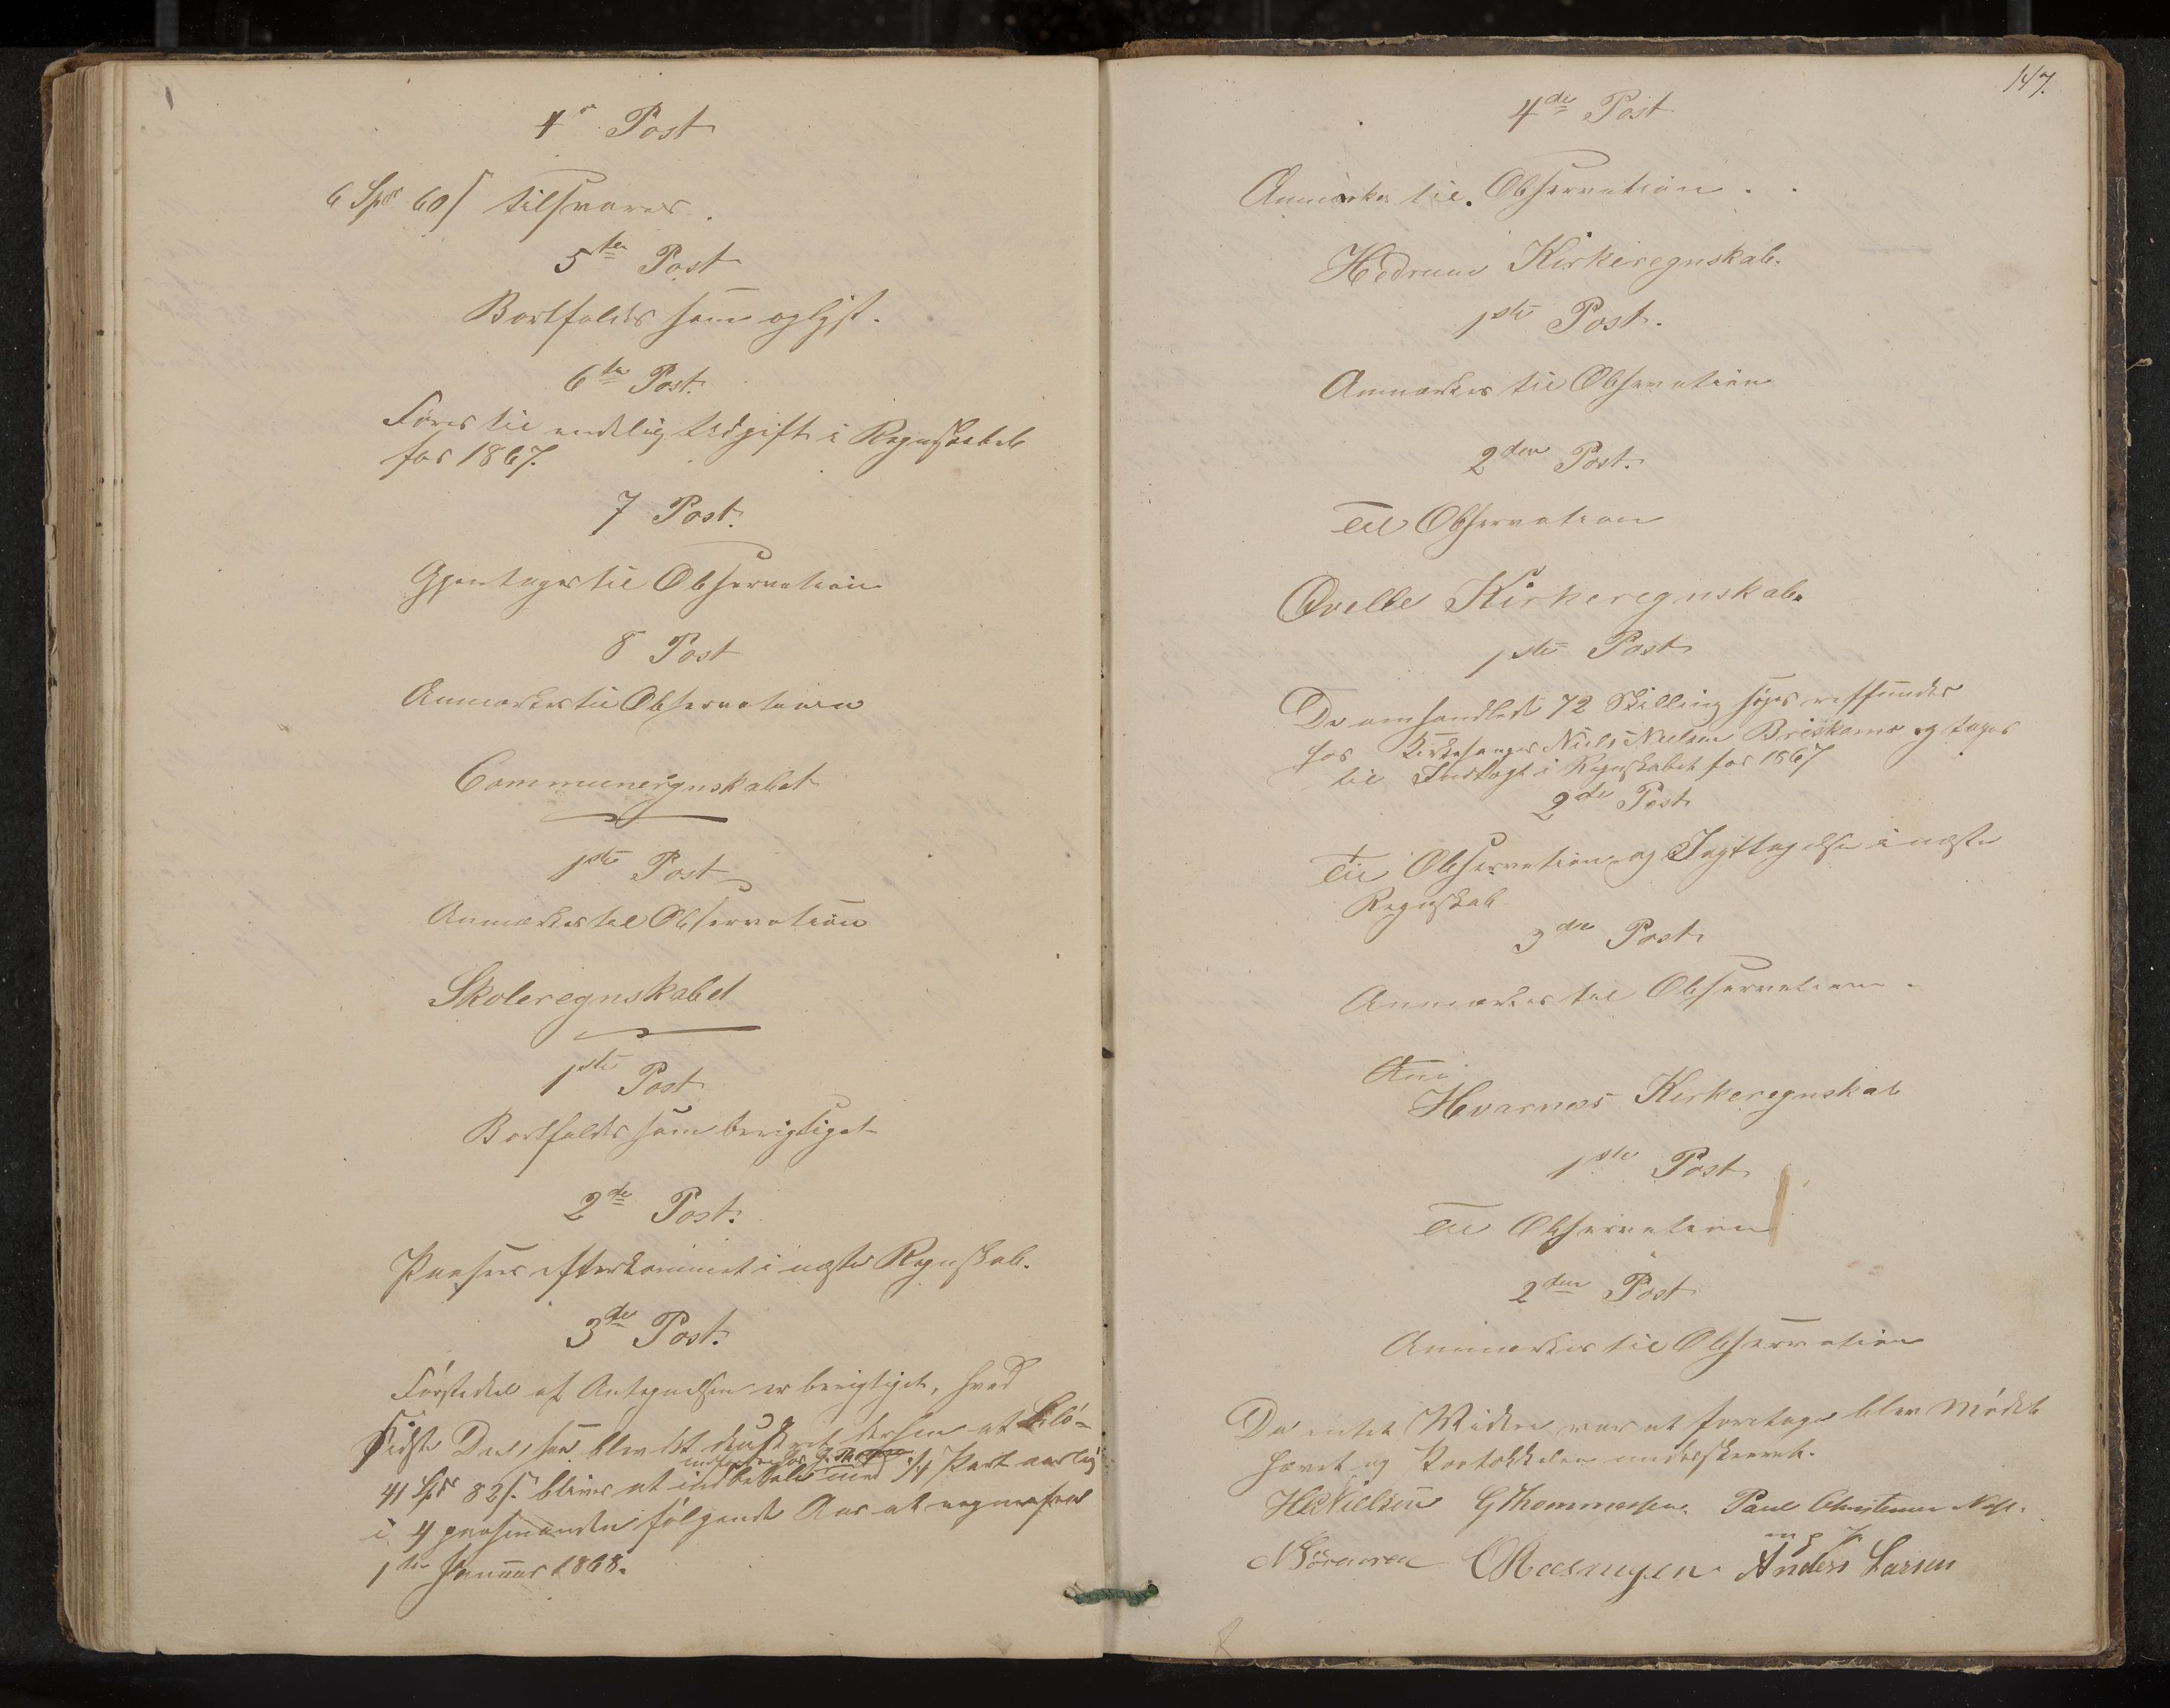 4 Post
6 Spd 60 ſ tilsvares.
5te Post
Bortfalder som oplyst.
6te Post.
Føres til endelig Udgift i Regnskabet
for 1867.
7 Post.
Gjentages til Observation
8 Post
Anmærkes til Observation
Communeregnskabet
1ste Post
Anmærkes til Observation
Skoleregnskabet
1ste Post
Bortfalder som berigtiget
2de Post.
Paasees efterkommet i næste Regnskab.
3de Post.
Første Deel af Antegnelsen er berigtiget, hvad
sidste Deel, saa blev det at Beløbet
41 Spd 82 ſ. bliver at indbetale med 1/4 Part aarlig
i 4 paafølgende Aar at regne fra
1ste Januar 1868.
147.
4de Post
Anmærkes til Observation.
Hedrum Kirkeregnskab.
1ste Post.
Anmærkes til Observation
2den Post.
Til Observation
Qvelle Kirkeregnskab.
1ste Post
De omhandlede 72 Skilling søges refunderet
hos Kirkesanger Niels Nielsen Briskemo og tages
til Indtægt i Regnskabet for 1867
2de Post
Til Observation og Iagttagelse i næste
Regnskab
3die Post
Anmærkes til Observation.
Hvarnæs Kirkeregnskab
1ste Post
Til Observation
2den Post
Anmærkes til Observation
Da intet Videre var at foretage blev Mødet
hævet og Protokollen underskrevet.
Nielsen G Thommessen. Paul Christensen
N Sørensen Anders Larsen